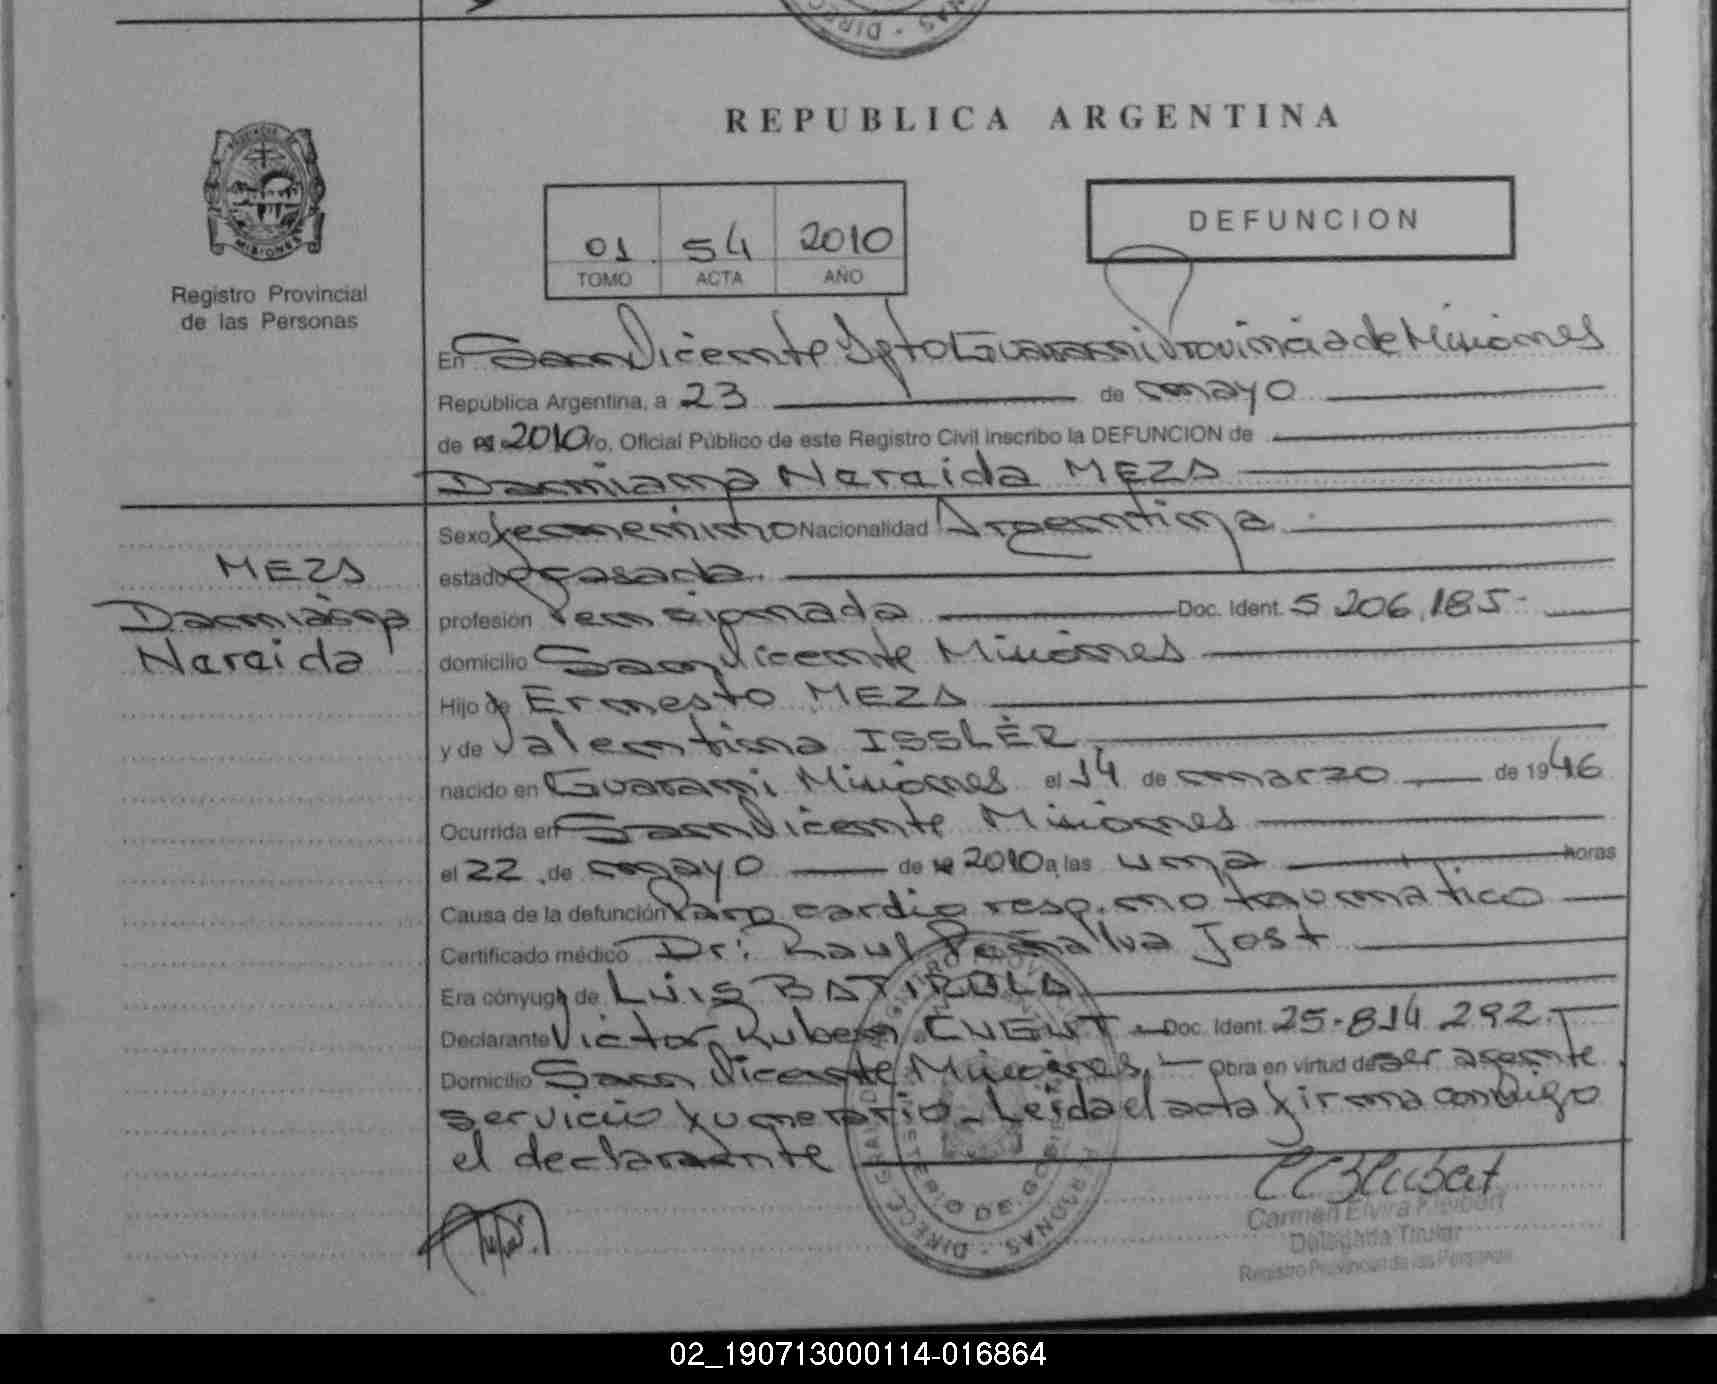 REPUBLICA ARGENTINA
PROVINCIA
MISIONES
Registro Provincial
de las Personas
01 54 2010
TOMO ACTA AÑO
DEFUNCION
En San Vicente Dpto Guarani Provincia de Misiones
República Argentina, a 23 de mayo
de 2010 Yo, Oficial Público de este Registro Civil inscribo la DEFUNCION de
Damiana Nereida MEZA
MEZA
Damiana
Nereida
Sexo femenino Nacionalidad Argentina
estado casada
profesión Pensionada Doc. Ident. 5 206.185
domicilio San Vicente Misiones
Hijo de Ernesto MEZA
y de Valentina ISSLER
nacido en Guarani Misiones el 14 de marzo de 1946
Ocurrida en San Vicente Misiones
el 22 de mayo de 2010 a las una horas
Causa de la defunción Paro cardio resp. no traumatico
Certificado médico Dr: Raul Peñalva Jost
Era cónyuge de LUIS BATIROLA
Declarante Victor Ruben Doc. Ident. 25-814.292
Domicilio San Vicente Misiones Obra en virtud de ser agente
servicio funerario - Leida el acta firma conmigo
el declarante
Carmen Elvira
Delegada Titular
Registro Provincial de las Personas
02_190713000114-016864